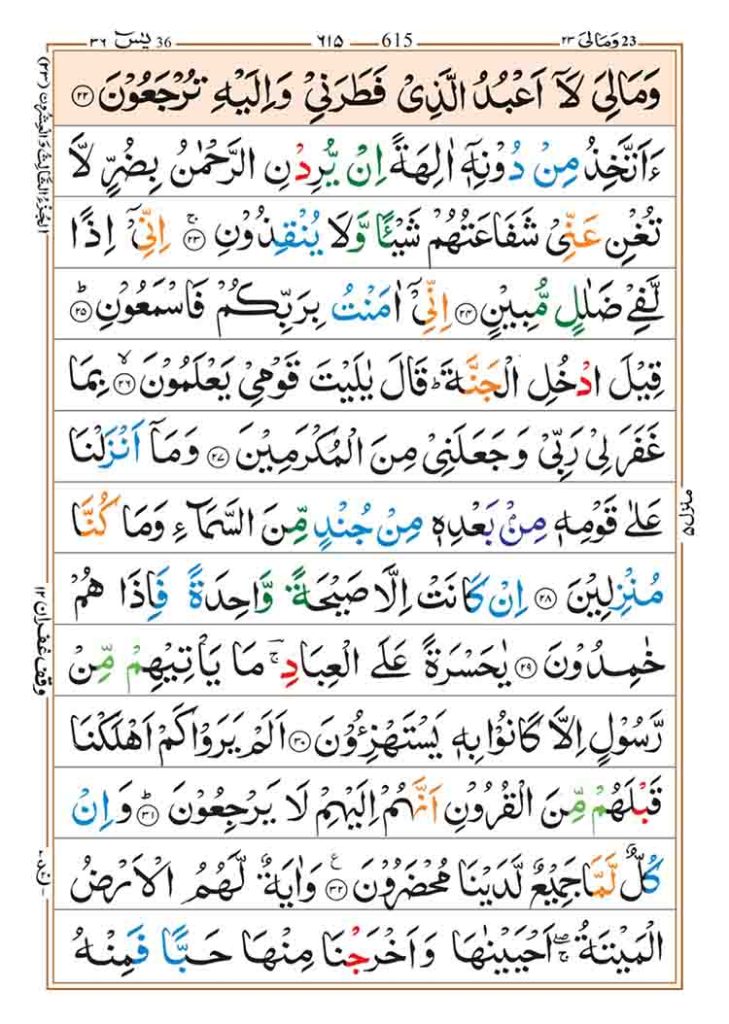 يٰسٓ 36 ٣٦
615 ٦١٥
23 وَمَالِىَ ٢٣
وَمَالِىَ لَاۤ اَعۡبُدُ الَّذِىۡ فَطَرَنِىۡ وَاِلَيۡهِ تُرۡجَعُوۡنَ ﴿۲۲﴾
ءَاَتَّخِذُ مِنۡ دُوۡنِهٖۤ اٰلِهَةً اِنۡ يُّرِدۡنِ الرَّحۡمٰنُ بِضُرٍّ لَّا
تُغۡنِ عَنِّىۡ شَفَاعَتُهُمۡ شَيۡـًٔا وَّلَا يُنۡقِذُوۡنِ‌ۚ ﴿۲۳﴾ اِنِّىۡۤ اِذًا
لَّفِىۡ ضَلٰلٍ مُّبِيۡنٍ ﴿۲۴﴾ اِنِّىۡۤ اٰمَنۡتُ بِرَبِّكُمۡ فَاسۡمَعُوۡنِؕ ﴿۲۵﴾
قِيۡلَ ادۡخُلِ الۡجَـنَّةَ ؕ قَالَ يٰلَيۡتَ قَوۡمِىۡ يَعۡلَمُوۡنَۙ ﴿۲۶﴾ بِمَا
غَفَرَلِىۡ رَبِّىۡ وَجَعَلَنِىۡ مِنَ الۡمُكۡرَمِيۡنَ ﴿۲۷﴾ وَمَاۤ اَنۡزَلۡنَا
عَلٰى قَوۡمِهٖ مِنۡۢ بَعۡدِهٖ مِنۡ جُنۡدٍ مِّنَ السَّمَآءِ وَمَا كُنَّا
مُنۡزِلِيۡنَ ﴿۲۸﴾ اِنۡ كَانَتۡ اِلَّا صَيۡحَةً وَّاحِدَةً فَاِذَا هُمۡ
خٰمِدُوۡنَ ﴿۲۹﴾ يٰحَسۡرَةً عَلَى الۡعِبَادِ ۚؔ مَا يَاۡتِيۡهِمۡ مِّنۡ
رَّسُوۡلٍ اِلَّا كَانُوۡا بِهٖ يَسۡتَهۡزِءُوۡنَ ﴿۳۰﴾ اَلَمۡ يَرَوۡا كَمۡ اَهۡلَكۡنَا
قَبۡلَهُمۡ مِّنَ الۡقُرُوۡنِ اَنَّهُمۡ اِلَيۡهِمۡ لَا يَرۡجِعُوۡنَؕ ﴿۳۱﴾ وَاِنۡ
كُلٌّ لَّمَّا جَمِيۡعٌ لَّدَيۡنَا مُحۡضَرُوۡنَ ﴿۳۲﴾ ع وَاٰيَةٌ لَّهُمُ الۡاَرۡضُ
الۡمَيۡتَةُ ۖۚ اَحۡيَيۡنٰهَا وَاَخۡرَجۡنَا مِنۡهَا حَبًّا فَمِنۡهُ
اَلۡجُزۡءُ الثَّالِثُ وَالۡعِشۡرُوۡنَ (٢٣)
وقف غفران ١٢
منزل ٥